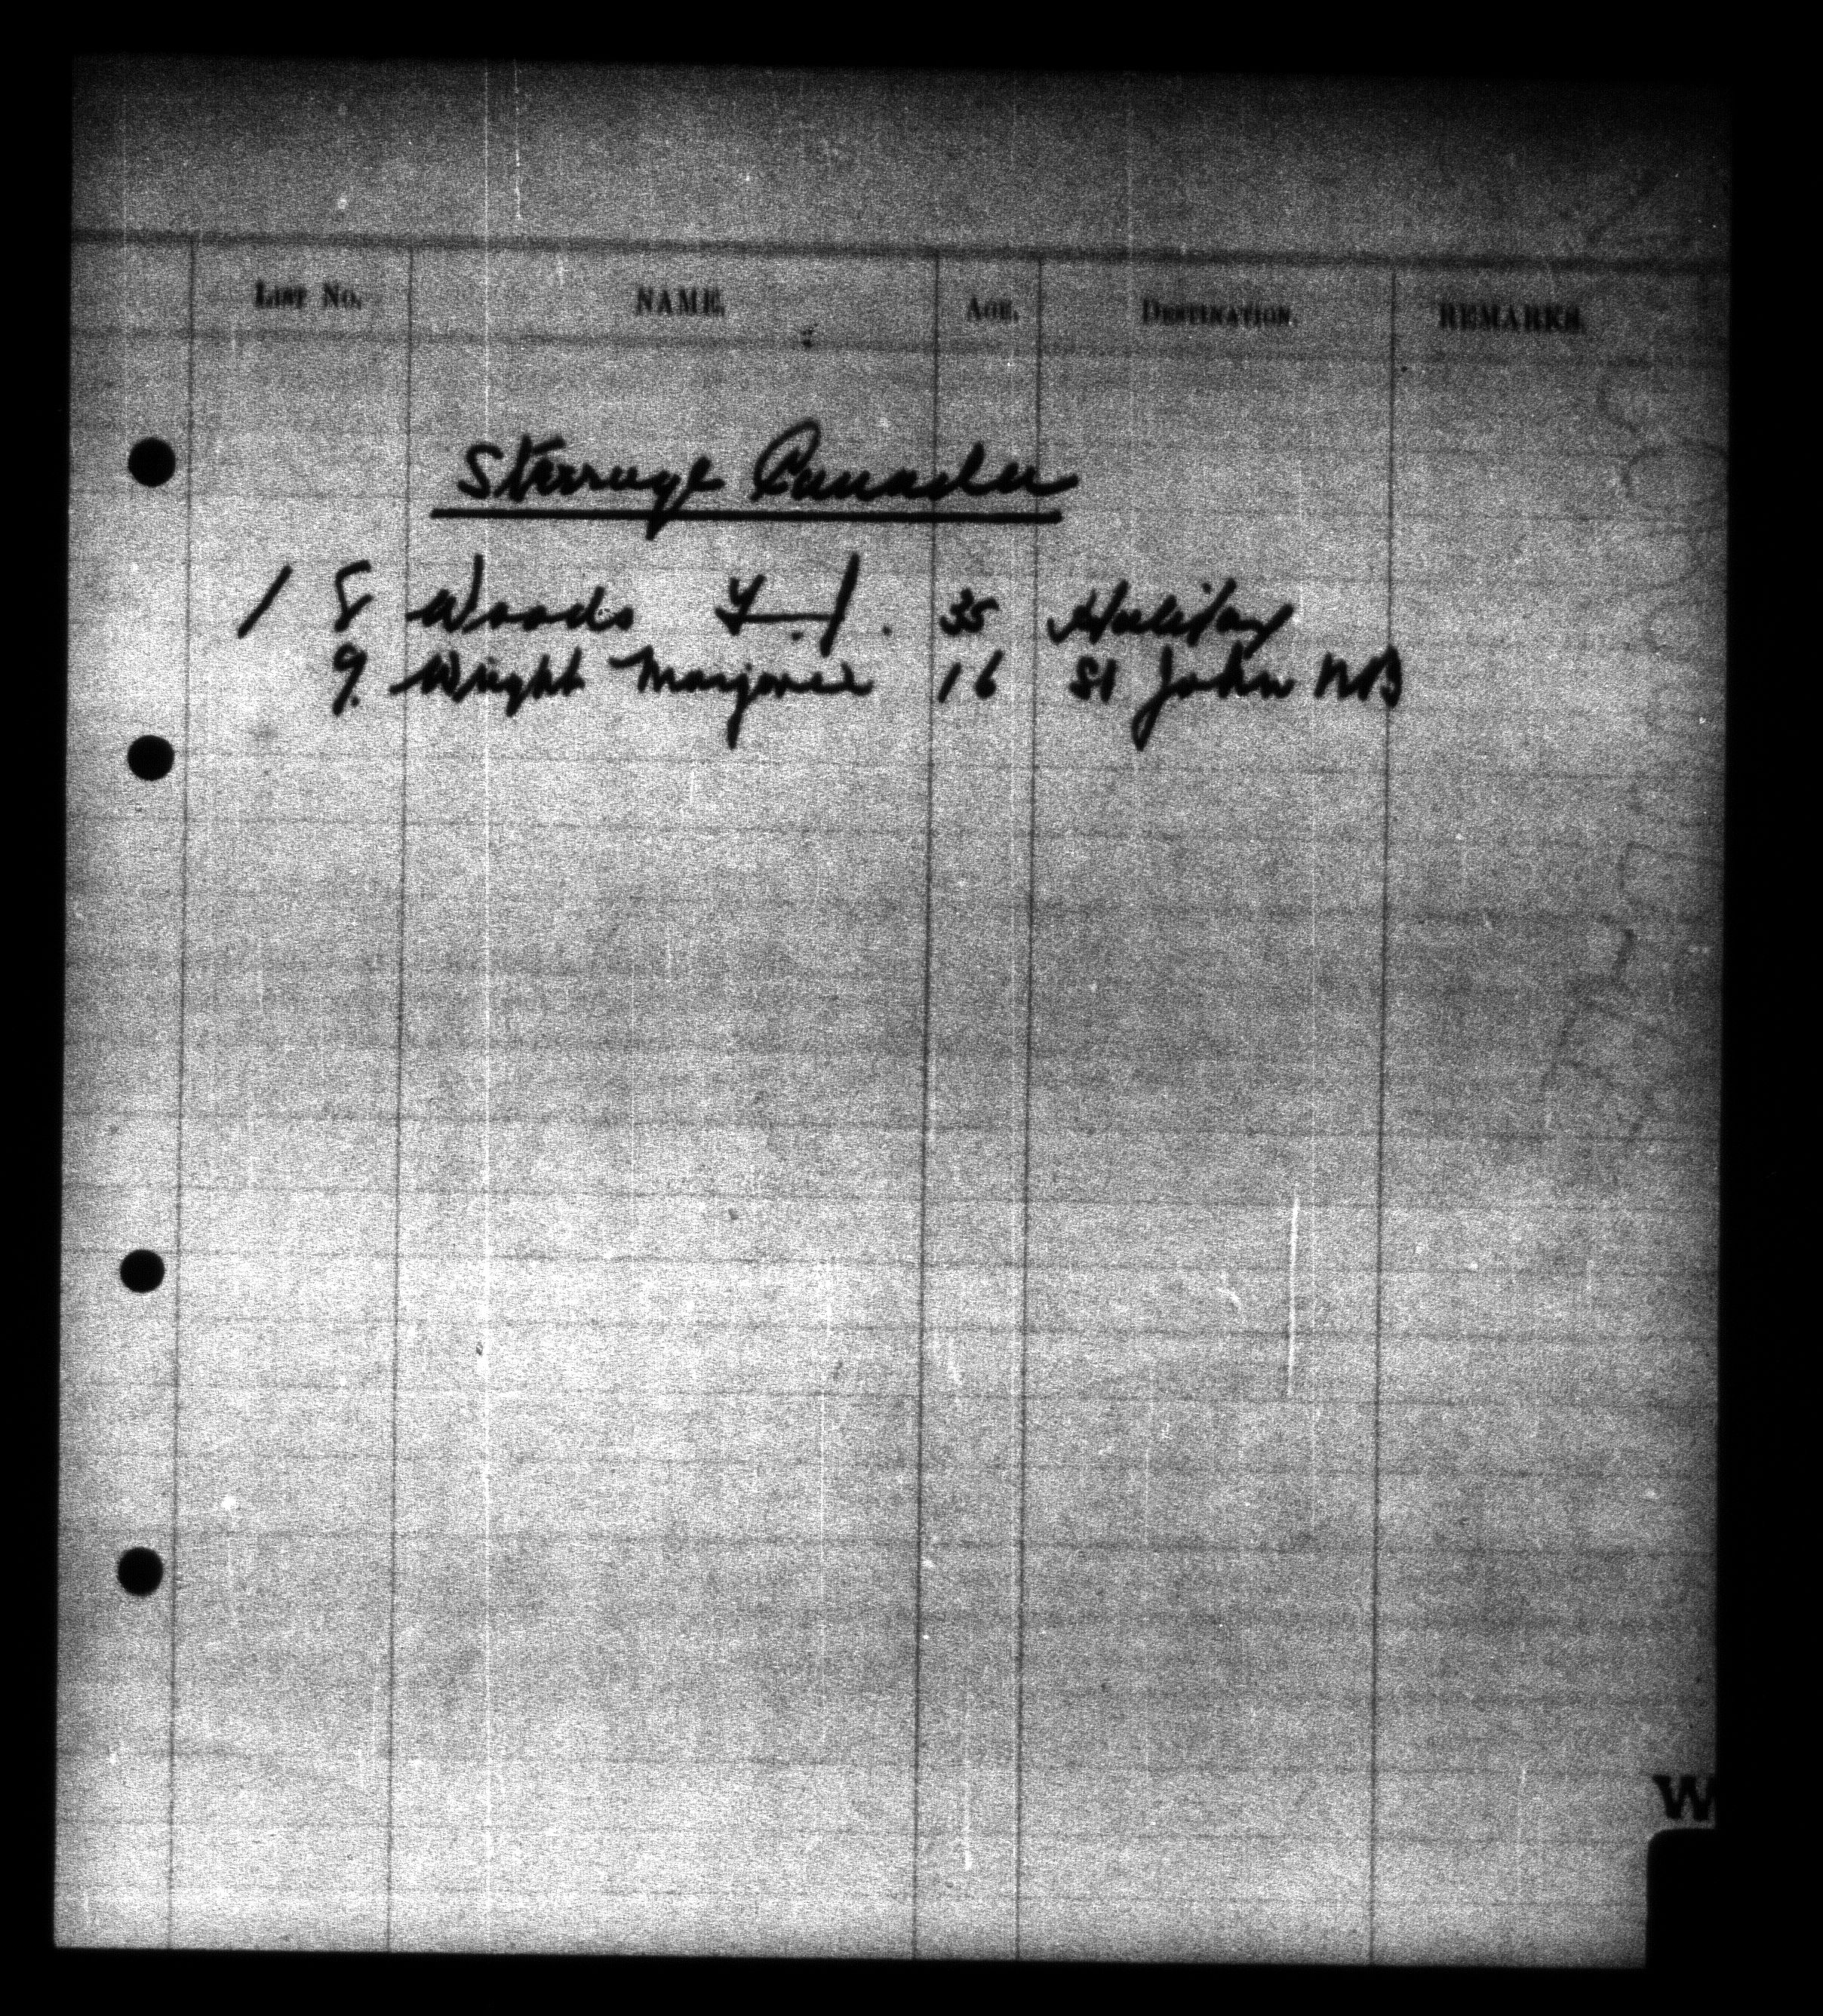 LIST No. NAME. AGE. DESTINATION. REMARKS.
Steerage Canada
1 8 Woods 35 Halifax
9. Wright Marjorie 16 St John NB
W